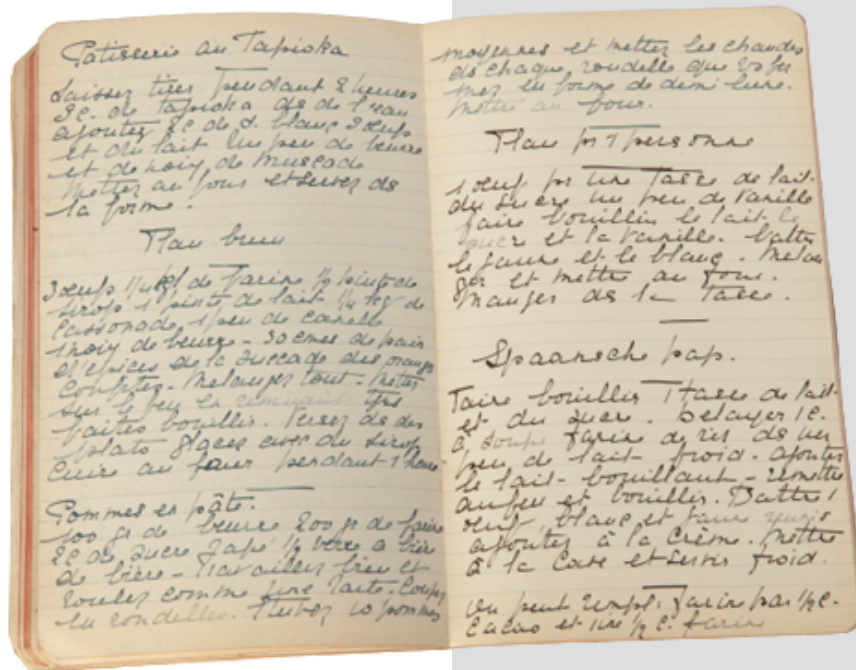 Patisserie au Tapioka
Laissez tirer pendant 2 heures
3 c. de tapioka ds de l'eau
ajoutez 2 c de s. blanc 3 œufs
et du lait un peu de beurre
et de noix de muscade
Mettez au four et servez ds
la forme.
Flan brun
3 œufs 1/4 kgl de farine 1/2 pinte de
sirop 1 pinte de lait 1/4 kg de
Cassonade 1 peu de canelle
1 noix de beurre - 30 cmes de pain
d'épices de la succade des oranges
confites. Melangez tout - Mettez
sur le feu en remuant
faites bouillir. Versez ds des
plats glacés avec du sirop
Cuire au four pendant 1 heure
Pommes en pâte.
100 gr de beurre 200 gr de farine
2 c de sucre 1/2 verre à bière
de bière - travaillez bien et
roulez comme une tarte. Coupez
en rondelles. 10 pommes
moyennes et mettez les chaudes
ds chaque rondelle que vs
mez en forme de demi lune.
Mettre au four.
Flan pr 1 personne
1 œuf pr une tasse de lait
du sucre un peu de vanille
faire bouillir le lait le
sucr et la vanille. battre
le jaune et le blanc. Melan
ger et mettre au four.
Manger ds la tasse.
Spaansche pap.
Faire bouillir 1 tasse de lait
et du sucre. Delayer 1 c.
à soupe farine de riz ds un
peu de lait froid - ajouter
le lait bouillant - remettre
au feu et bouillir. Battre 1
œuf, blanc et jaune
ajoutez à la crème. Mettre
à la cave et servir froid.
On peut rempl. farine par 1/2 c.
Cacao et 1/2 c. farine